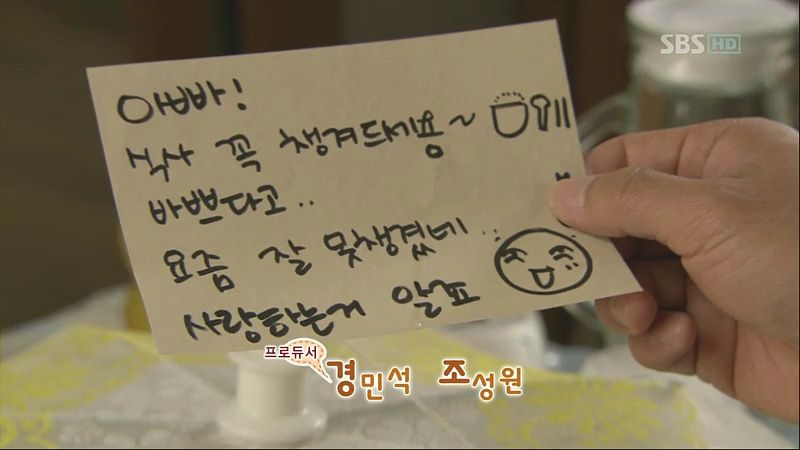 SBS HD
아빠!
식사 꼭 챙겨드세용~
바쁘다고..
요즘 잘 못챙겼네..
사랑하는거 알죠
프로듀서
경민석 조성원